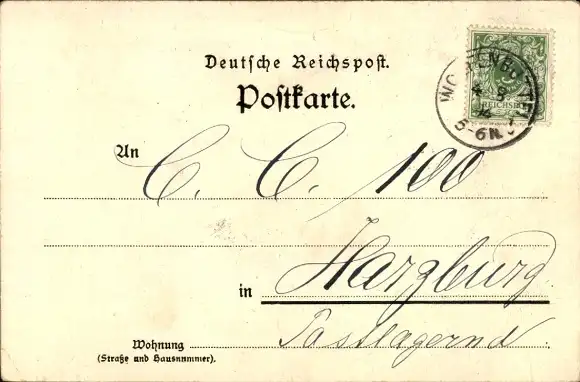 Deutsche Reichspost.
Postkarte.
REICHSPOST
5-6N.
An C. C. 100
in Harzburg
Postlagernd.
Wohnung
(Straße und Hausnummer).